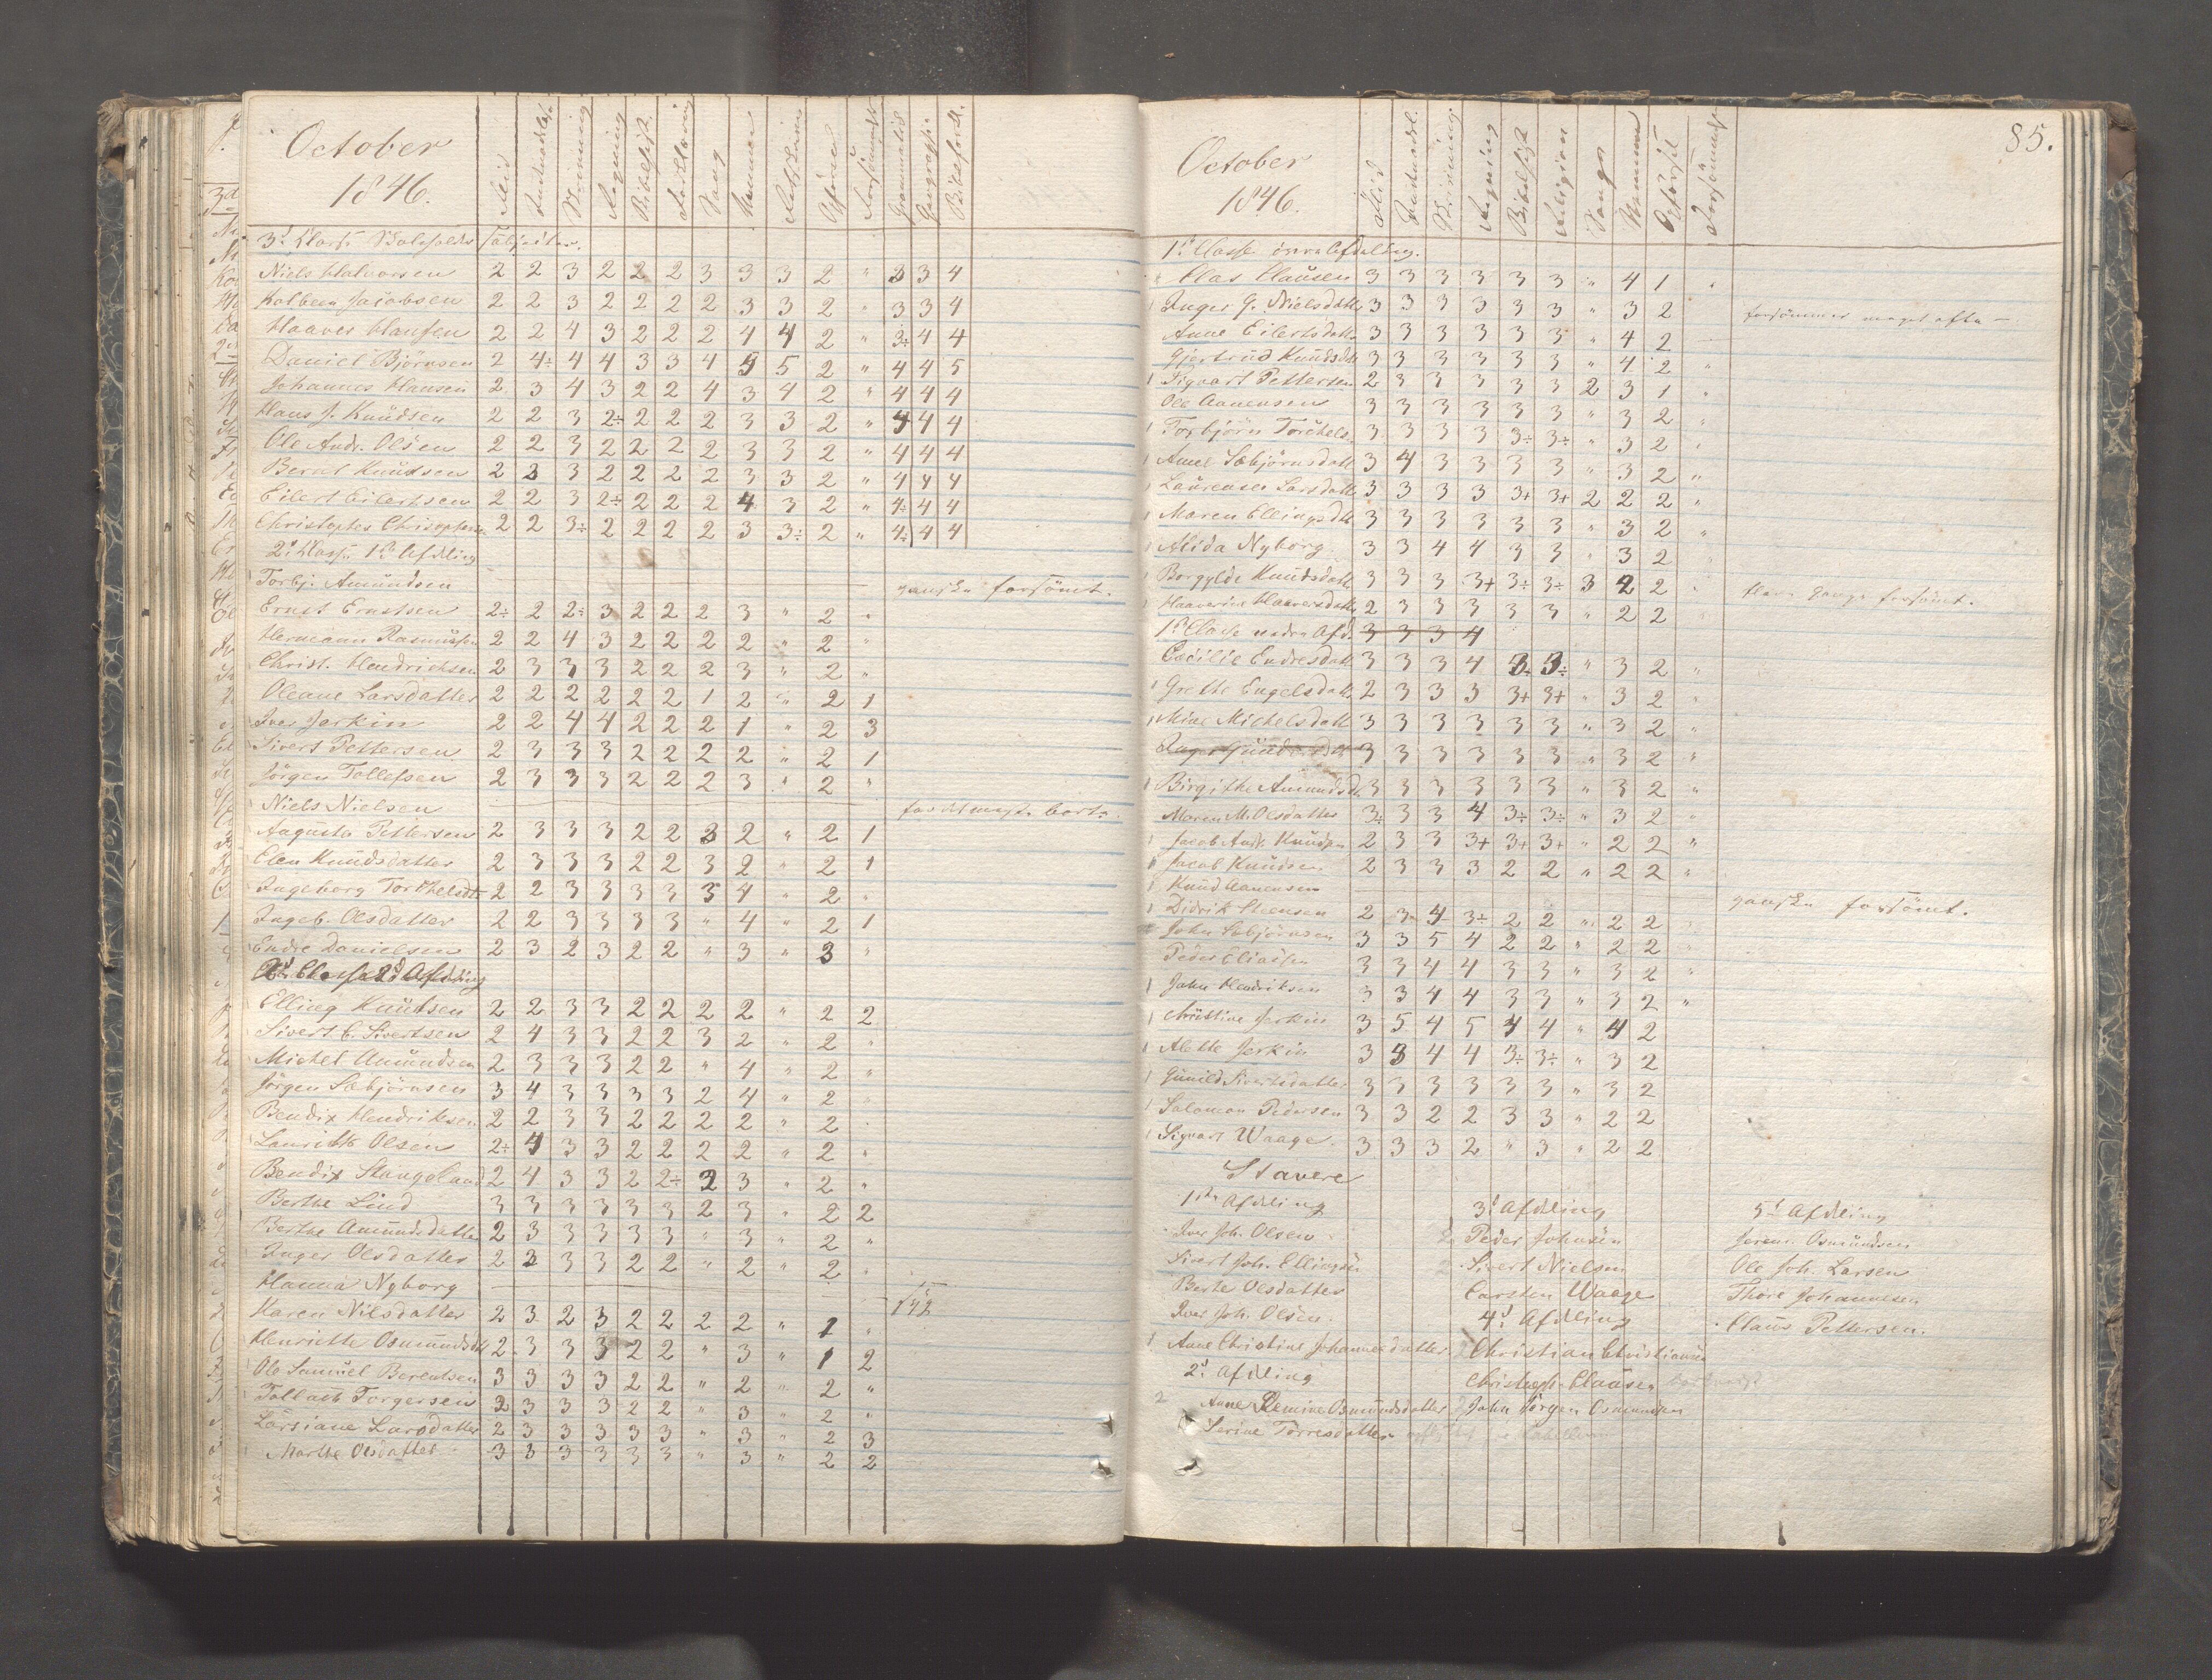 October
1846.
Flid
Skrivning
Regning
Sang
Niels Halvorsen 2 2 3 2 2 2 3 3 3 2 " 3 3 4
Kolbeen Jacobsen 2 2 3 2 2 2 2 3 3 2 " 3 3 4
Haaver Hansen 2 2 4 3 2 2 2 4 4 2 " 3÷ 4 4
Daniel Björnsen 2 4÷ 4 4 3 3 4 5 5 2 " 4 4 5
Johannes Hansen 2 3 4 3 2 2 4 3 4 2 " 4 4 4
Hans J. Knudsen 2 2 3 2÷ 2 2 2 3 3 2 " 4 4 4
Ole Andr. Olsen 2 2 3 2 2 2 2 3 3 2 " 4 4 4
Bernt Knudsen 2 3 3 2 2 2 2 3 3 2 " 4 4 4
Eilert Eilertsen 2 2 3 2÷ 2 2 2 4 3 2 " 4÷ 4 4
2 2 3÷ 2 2 2 2 3 3÷ 2 " 4÷ 4 4
2d Classe 1ste Afdeling
Torbj. Amundsen ganske forsömt.
Ernst Ernstsen 2÷ 2 2÷ 3 2 2 2 3 " 2 "
Hermann Rasmussen 2 2 4 3 2 2 2 2 " 2 "
Christ. Hendrichsen 2 3 3 3 2 2 2 3 " 2 "
Oleane Larsdatter 2 2 2 2 2 2 1 2 " 2 1
Iver Jerkin 2 2 4 4 2 2 2 1 " 2 3
Sivert Pettersen 2 3 3 3 2 2 2 2 " 2 1
Jörgen Tollefsen 2 3 3 3 2 2 2 3 " 2 "
Niels Nielsen
Auguste Pettersen 2 3 3 3 2 2 3 2 " 2 1
Elen Knudsdatter 2 3 3 3 2 2 3 2 " 2 1
Ingeborg Torkelsdt 2 2 3 3 3 3 3 4 " 2 "
Ingeb. Olsdatter 2 2 3 3 3 3 " 4 " 2 1
Endre Danielsen 2 3 2 3 2 2 " 3 " 3 "
2d Classe 2d Afdeling
Elling Knutsen 2 2 3 3 2 2 2 2 " 2 2
Sivert C. Sivertsen 2 4 3 3 2 2 3 2 " 2 "
Michel Amundsen 2 3 3 3 2 2 " 4 " 2 "
Jörgen Sæbjörnsen 3 4 3 3 3 3 2 4 " 2 "
Bendix Hendriksen 2 2 3 3 2 2 2 2 " 2
Lauritz Olsen 2÷ 4 3 3 2 2 2 2 " 2 "
Bendix Stangeland 2 4 3 3 2 2÷ 2 3 " 2 "
Berthe Lind 3 3 3 3 3 3 2 3 " 2 2
Berthe Amundsdatter 2 3 3 3 3 3 " 3 " 2 "
Inger Olsdatter 2 3 3 3 2 2 " 2 " 2 "
Hanna Nyborg
Karen Nilsdatter 2 3 2 3 2 2 2 2 " 1 "
Henriette Osmundsdtt 2 3 3 3 2 2 " 3 " 1 2
Ole Samuel Berentsen 3 3 3 3 2 2 " 2 " 2 "
Tollach Torgersen 2 3 3 3 2 2 " 3 " 2 "
Larsiane Larsdatter 2 3 3 3 3 3 " 3 " 2 3
Marthe Olsdatter 3 3 3 3 3 3 " 3 " 2 2
85.
October
1846.
Flid
Skrivning
Regning
Bibelhist
Religion
Sang
Opförsel
1ste Classe övre Afdeling.
Clas Clausen 3 3 3 3 3 3 " 4 1 "
Inger G. Nielsdatter 3 3 3 3 3 3 " 3 2 forsömmer meget ofte –
Anne Eilertsdatter 3 3 3 3 3 3 " 4 2
Gjertrud Knudsdtt 3 3 3 3 3 3 " 4 2 "
Sigvart Pettersen 2 3 3 3 3 3 2 3 1 "
Ole Aanensen 3 3 3 3 3 3 " 3 2 "
Torbjörn Torkels. 3 3 3 3 3÷ 3÷ " 3 2 "
Anne Sæbjörnsdatt 3 4 3 3 3 3 " 3 2 "
Laurense Larsdatt 3 3 3 3 3+ 3+ 2 2 2 "
Maren Ellingsdtt 3 3 3 3 3 3 " 3 2 "
Alida Nyborg 3 3 4 4 3 3 " 3 2
Borgylde Knudsdatt 3 3 3 3+ 3÷ 3÷ 3 2 2 " flere gange forsömt.
2 3 3 3 3 3 " 2 2
1ste Classe nedre Afd. 3 3 3 4
Cecilie Endresdatt 3 3 3 4 3÷ 3÷ " 3 2 "
Grethe Engelsdatt 2 3 3 3 3+ 3+ " 3 2 "
Mine Michelsdatt 3 3 3 3 3 3 " 3 2 "
3 3 3 3 3 3 " 3 2 "
Birgithe Amundsdt 3 3 3 3 3 3 " 3 2 "
Maren M. Olsdatter 3÷ 3 3 4 3÷ 3÷ " 3 2 "
Jacob Andr. Knudsen 2 3 3 3+ 3+ 3+ " 2 2 "
Jacob Knudsen 2 3 3 3 2 2 " 2 2 "
Knud Aanensen ganske forsömt.
Didrik Steensen 2 3 4 3÷ 2 2 " 2 2
John Sæbjörnsen 3 3 5 4 2 2 " 2 2
Peder Eliassen 3 3 4 4 3 3 " 3 2 "
John Hendriksen 3 3 4 4 3 3 " 3 2 "
Christine Jerkin 3 5 4 5 4 4 " 4 2
Alette Jerkin 3 3 4 4 3÷ 3÷ " 3 2
Gunild Sivertsdatter 3 3 3 3 3 3 " 3 2
Salomon Pedersen 3 3 2 2 3 3 " 2 2
Sigvart Waage 3 3 3 2 " 3 " 2 2
Stavere
1ste Afdeling
Iver Joh. Olsen
Sivert Joh. Ellingsen
Berte Olsdatter
Iver Joh. Olsen.
Anne Christine Johannesdatter
2d Afdeling
Anne Osmundsdatter
Serine Torresdatter
3d Afdeling
Peder Johnsen
Sivert Nielsen
Carsten Waage
4d Afdeling
Christian Christiansen
Christoph. Clausen
John Jörgen Osmundsen
5te Afdeling
Osmundsen
Ole Joh. Larsen
Thore Johannesen
Claus Pettersen.